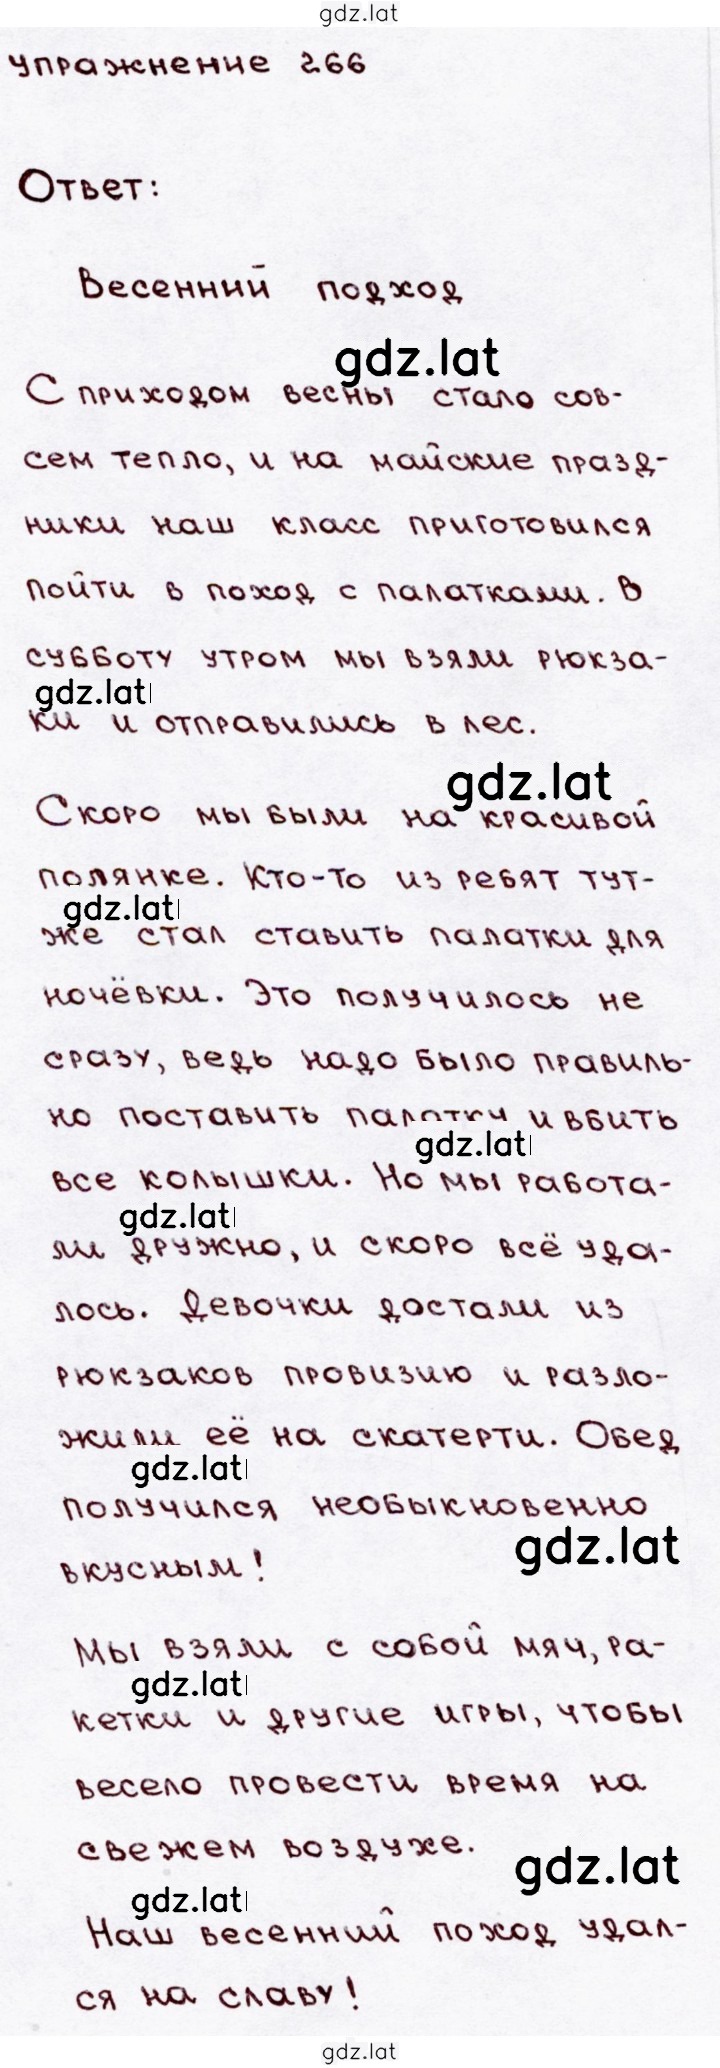 gdz.lat
упражнение 266
Ответ:
Весенний подход
gdz.lat
С приходом весны стало сов-
сем тепло, и на майские празд-
ники наш класс приготовился
пойти в поход с палатками. В
субботу утром мы взяли рюкза-
gdz.lat
ки и отправились в лес.
gdz.lat
Скоро мы были на красивой
полянке. Кто-то из ребят тут-
gdz.lat
же стал ставить палатки для
ночёвки. Это получилось не
сразу, ведь надо было правиль-
но поставить палатку и вбить
gdz.lat
все колышки. Но мы работа-
gdz.lat
ли дружно, и скоро всё уда-
лось. Девочки достали из
рюкзаков провизию и разло-
жили её на скатерти. Обед
gdz.lat
получился необыкновенно
gdz.lat
вкусным!
Мы взяли с собой мяч, ра-
gdz.lat
кетки и другие игры, чтобы
весело провести время на
свежем воздухе.
gdz.lat
gdz.lat
Наш весенний поход удал-
ся на славу!
gdz.lat